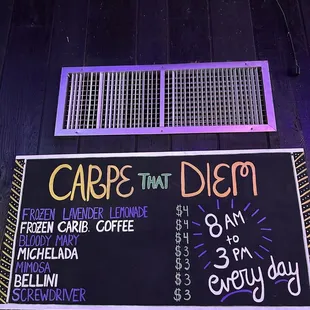 CARPE THAT DIEM
FROZEN LAVENDER LEMONADE $4
FROZEN CARIB. COFFEE $4
BLOODY MARY $4
MICHELADA $3
MIMOSA $3
BELLINI $3
SCREWDRIVER $3
8 AM
to
3 PM
every day